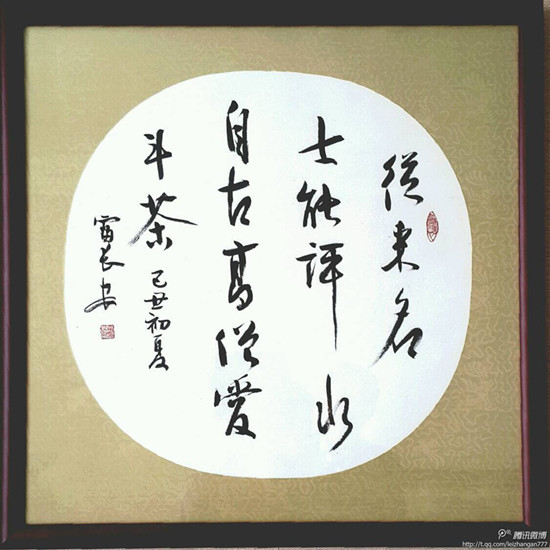 從来名
士能評水
自古高僧愛
斗茶
己丑初夏
雷长安
腾讯微博
http://t.qq.com/leizhangan777